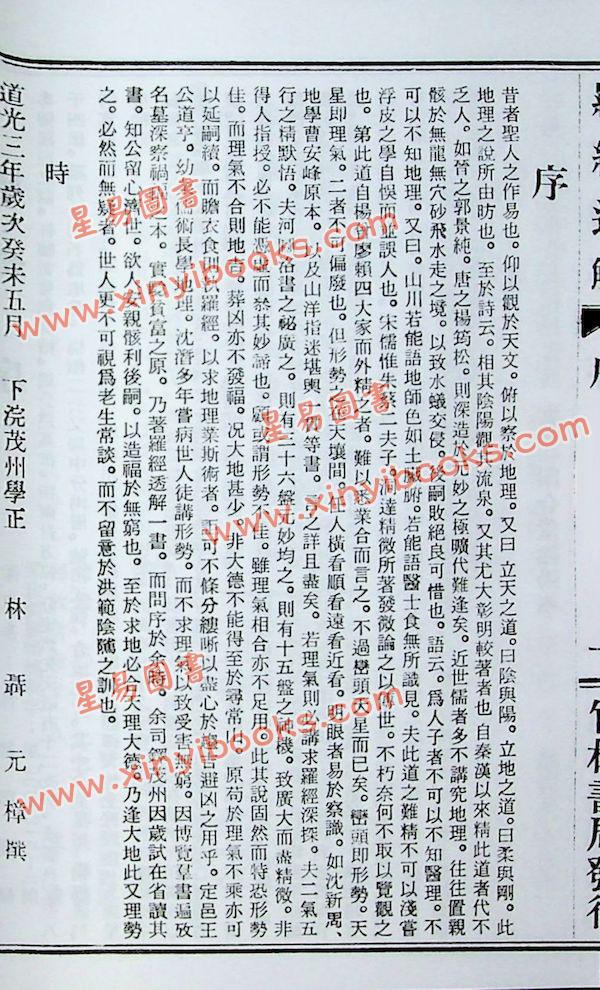 序
昔者聖人之作易也。仰以觀於天文。俯以察於地理。又曰立天之道。曰陰與陽。立地之道。曰柔與剛。此
地理之說所由昉也。至於詩云。相其陰陽觀其流泉。又其尤大彰明較著者也自秦漢以來精此道者代不
乏人。如晉之郭景純。唐之楊筠松。則深造於妙之極曠代難逢矣。近世儒者多不講究地理。往往置親
骸於無龍無穴砂飛水走之境。以致水蟻交侵。後嗣敗絕良可惜也。語云。爲人子者不可以不知醫理。不
可以不知地理。又曰。山川若能語地師色如土臟腑。若能語醫士食無所識見。夫此道之難精不可以淺嘗
浮皮之學自悞而並誤人也。宋儒惟朱蔡二夫子。洞達精微所著發微論之以傳世。不朽奈何不取以覽觀之
也。第此道自楊曾廖賴四大家而外精者。難以悉業合而言之。不過巒頭天星而已矣。巒頭即形勢。天
星即理氣。二者不可偏廢也。但形勢之在天壤間。任人橫看順看遠看近看。明眼者易於察識。如沈新周、
地學曹安峰原本。以及山洋指迷堪輿一切等書。言之詳且盡矣。若理氣則必講求羅經深探。夫二氣五
行之精默悟。夫河圖洛書之祕廣之。則有三十六盤元妙均之。則有十五盤之神機。致廣大而盡精微。非
得人指授。必不能憑虛而索其妙諦也。顧或謂形勢不佳。雖理氣相合亦不足用。此其說固然而特恐形勢
佳。而理氣不合則地吉。葬凶亦不發福。况大地甚少。非大德不能得至於尋常山。原苟於理氣不乘亦可
以延嗣續。而贍衣食則羅經。以求地理業斯術者。正可不條分縷晰以盡心於趨吉避凶之用乎。定邑王
公道亨。幼業儒術長學地理。沈潛多年嘗病世人徒講形勢。而不求理氣以致受害無窮。因博覽羣書遍攷
名墓深察禍福之本。實驗貧富之原。乃著羅經透解一書。而問序於余時。余司鐸茂州因歲試在省讀其
書。知公留心濟世。欲人安親骸利後嗣。以造福於無窮也。至於求地必合天理大德。乃逢大地此又理勢
之。必然而無疑者。世人更不可視爲老生常談。而不留意於洪範陰隲之訓也。
時
道光三年歲次癸未五月　下浣茂州學正　林　　元　樟　撰
星易圖書
www.xinyibooks.com
星易圖書
www.xinyibooks.com
星易圖書
www.xinyibooks.com